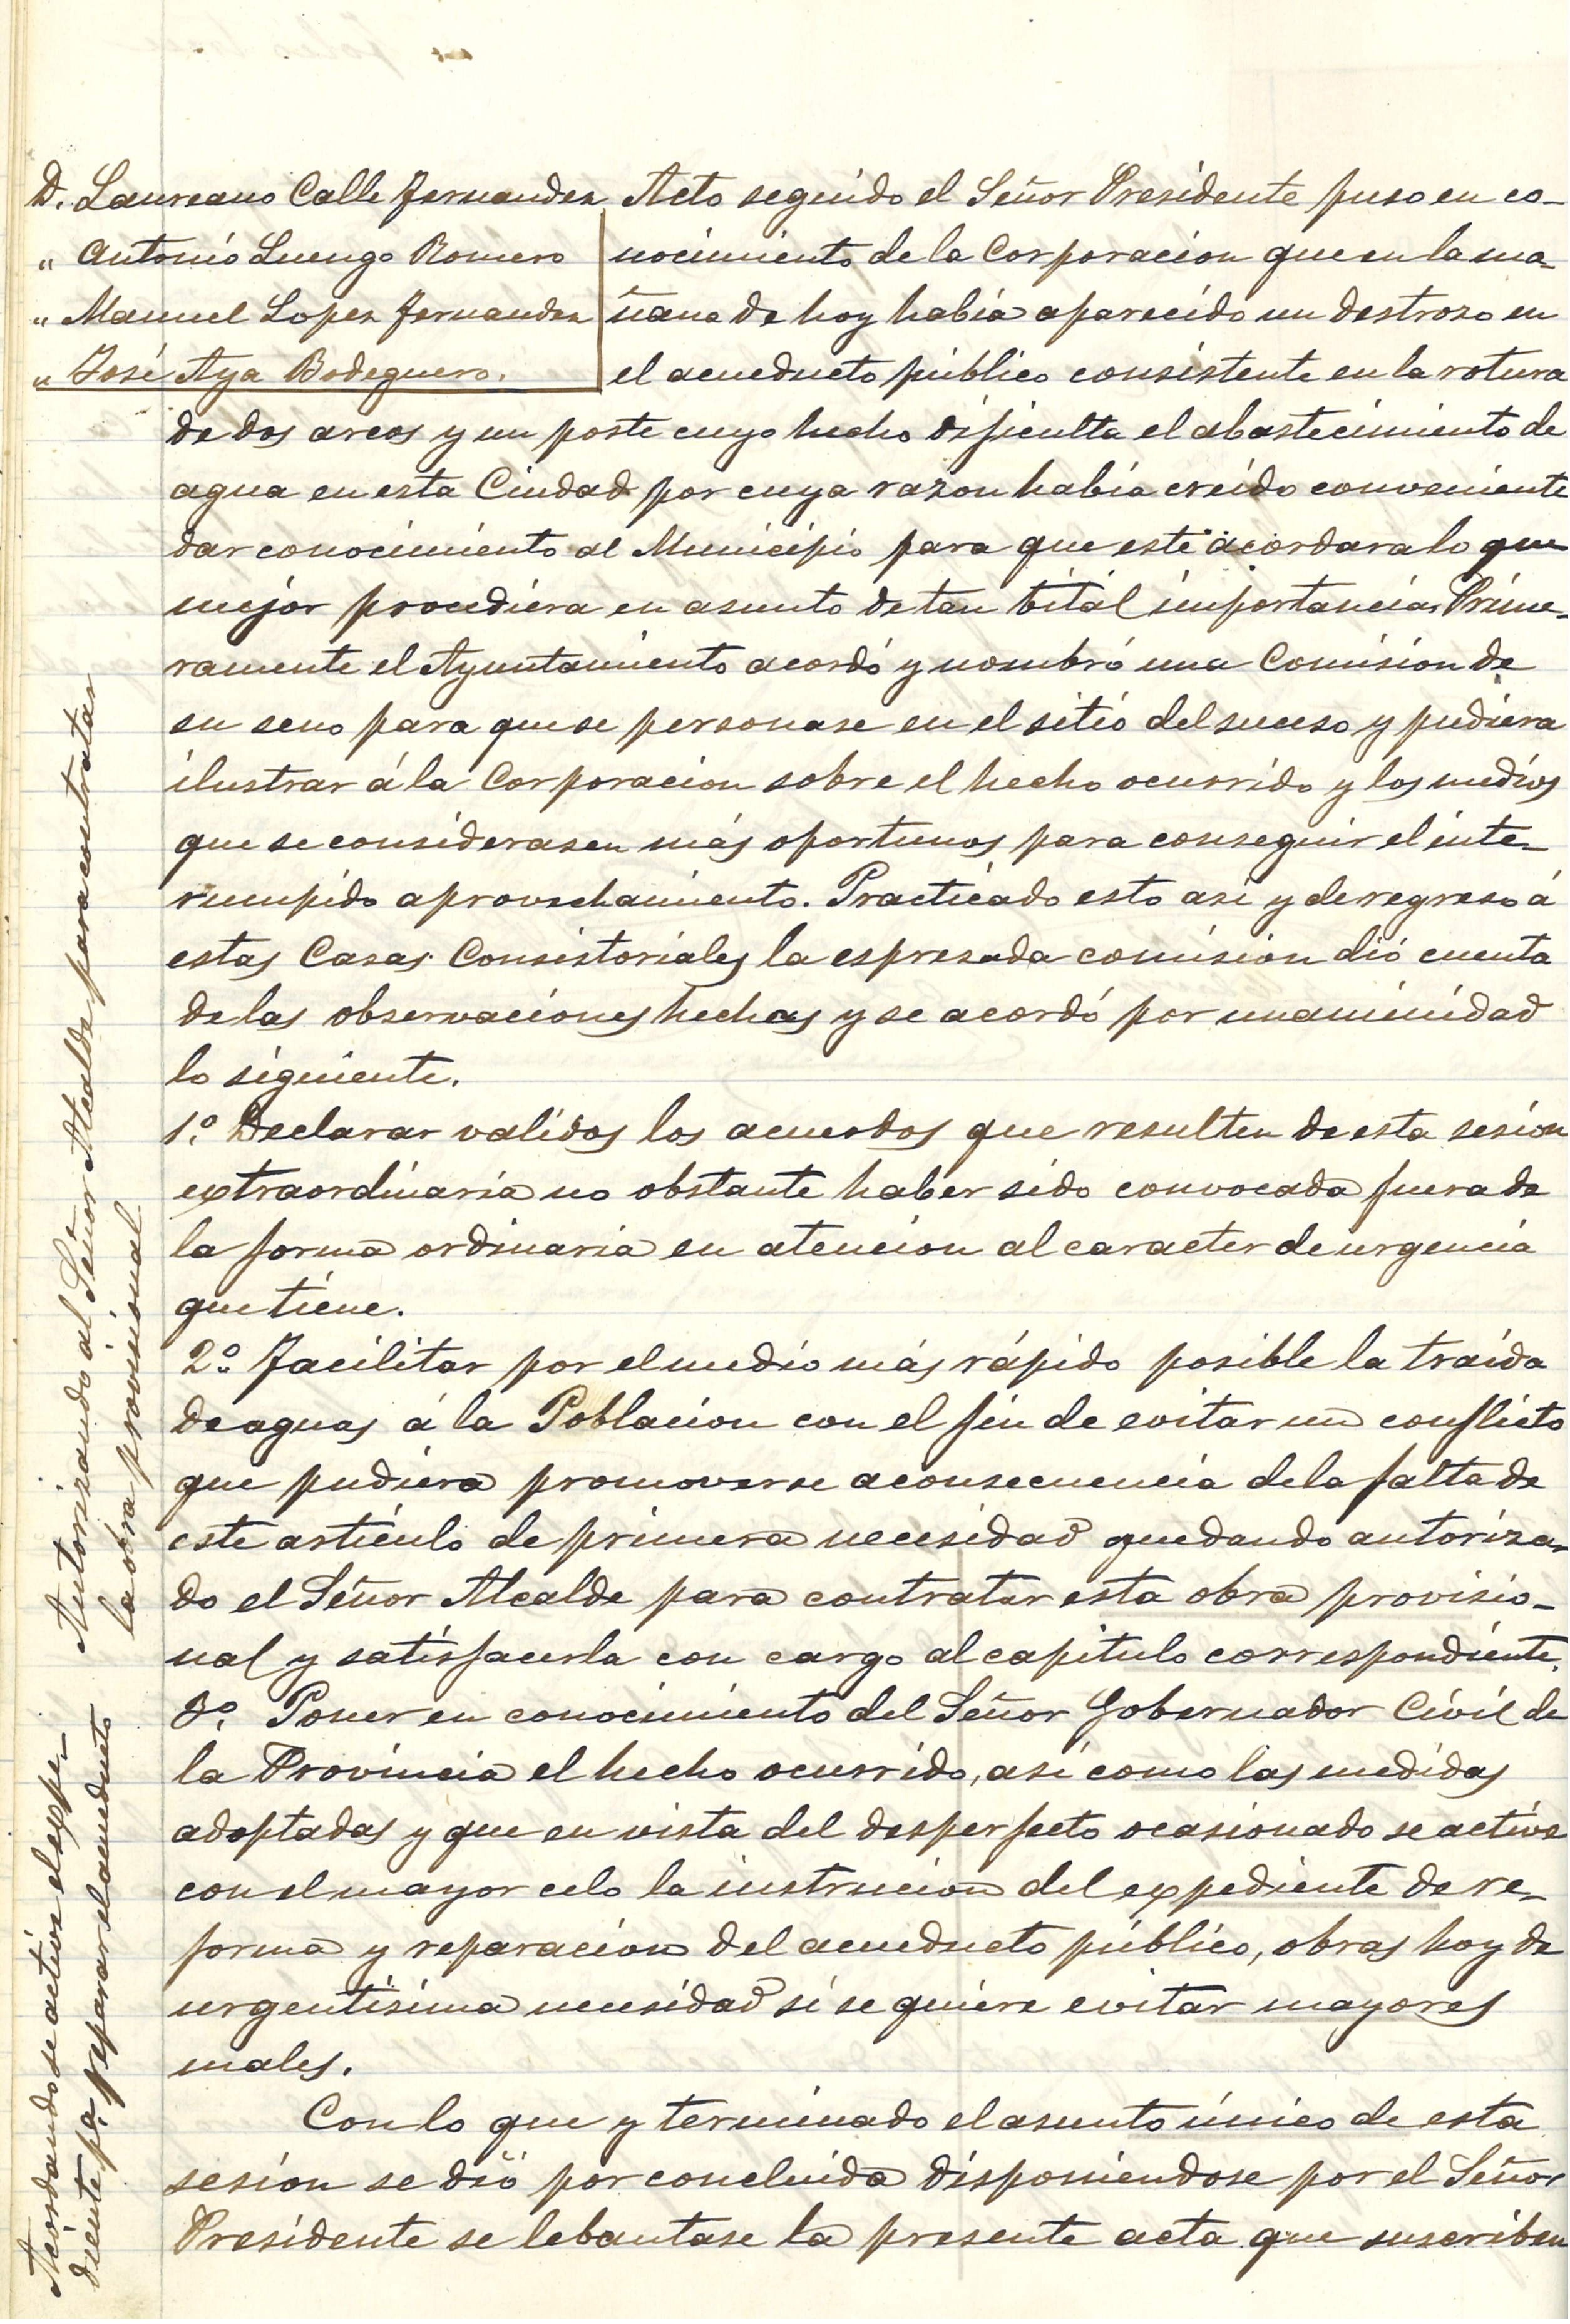 D. Laureano Calle Fernandez
" Antonio Luengo Romero
" Manuel Lopez Fernandez
" José Aya Bodeguero.
Acto seguido el Señor Presidente puso en co-
nocimiento de la Corporacion que en la ma-
ñana de hoy había aparecido un destrozo en
el acueducto público consistente en la rotura
de dos arcos y un poste cuyo hecho dificulta el abastecimiento de
agua en esta Ciudad por cuya razon había creido conveniente
dar conocimiento al Municipio para que este acordara lo que
mejor procediera en asunto de tan bital importancia. Prime-
ramente el Ayuntamiento acordó y nombró una Comision de
su seno para que se personase en el sitio del suceso y pudiera
ilustrar á la Corporacion sobre el hecho ocurrido y los medios
que se considerasen más oportunos para conseguir el inte-
rrumpido aprovechamiento. Practicado esto asi y de regreso á
estas Casas Consistoriales la espresada comision dió cuenta
de las observaciones hechas y se acordó por unanimidad
lo siguiente.
1º. Declarar validos los acuerdos que resulten de esta sesion
extraordinaria no obstante haber sido convocada fuera de
la forma ordinaria en atencion al caracter de urgencia
que tiene.
2º. Facilitar por el medio más rápido posible la traida
de aguas á la Poblacion con el fin de evitar un conflicto
que pudiera promoverse a consecuencia de la falta de
este artículo de primera necesidad quedando autoriza-
do el Señor Alcalde para contratar esta obra provisio-
nal y satisfacerla con cargo al capitulo correspondiente.
3º. Poner en conocimiento del Señor Gobernador Civil de
la Provincia el hecho ocurrido, asi como las medidas
adoptadas y que en vista del desperfecto ocasionado se active
con el mayor celo la instrucion del expediente de re-
forma y reparacion del acueducto público, obras hoy de
urgentísima necesidad si se quiere evitar mayores
males.
Con lo que y terminado el asunto único de esta
sesion se dió por concluida disponiendose por el Señor
Presidente se lebantase la presente acta que suscriben
Autorizando al Señor Alcalde para contratar
la obra provisional
Acordando se active el expe-
diente pª. reparar el acueducto